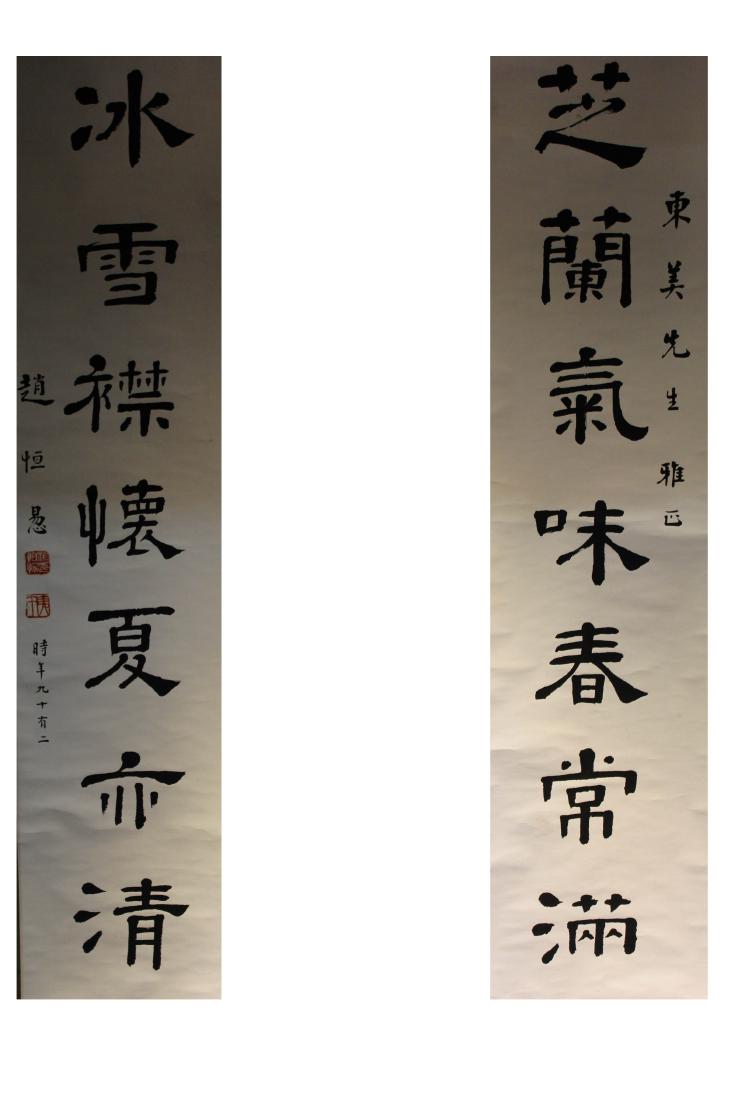 東美先生雅正
芝蘭氣味春常滿
冰雪襟懷夏亦清
趙恒惖
時年九十有二